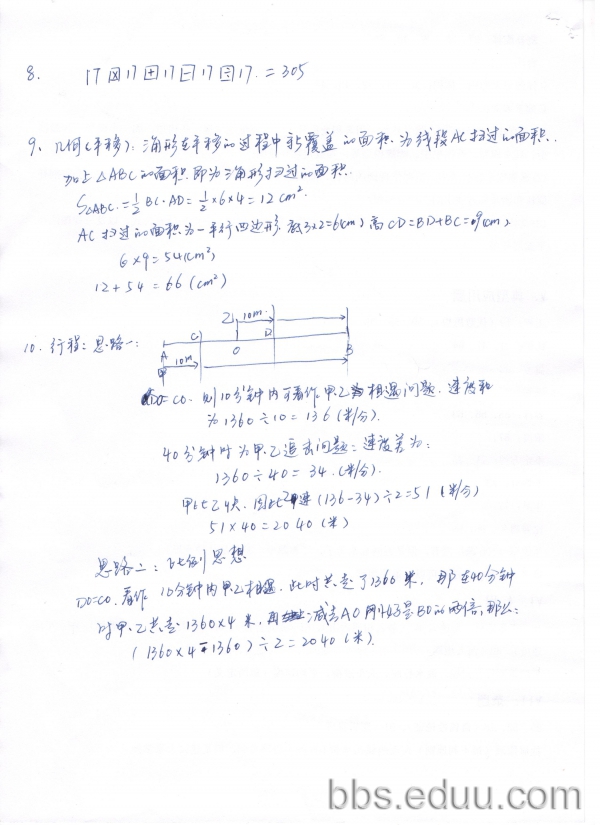 8. 17 ⊠ 17 ⊞ 17 ⊟ 17 ⊡ 17 = 305
9、几何(平移): 三角形在平移的过程中新覆盖的面积为线段AC扫过的面积.
加上△ABC的面积.即为三角形扫过的面积.
S△ABC = ½ BC·AD = ½×6×4 = 12 cm².
AC扫过的面积为一平行四边形 底3×2=6(cm) 高CD=BD+BC=9(cm)
6×9=54(cm²)
12+54=66(cm²)
乙 10m
C D
10. 行程: 思路一:
A O B
甲 10m
DO=CO. 则10分钟内可看作甲乙相遇问题. 速度和
为1360÷10=136(米/分).
40分钟时为甲.乙追击问题: 速度差为:
1360÷40=34.(米/分).
甲比乙快. 因此乙速(136-34)÷2=51(米/分)
51×40=2040(米)
思路二: 比例思想
DO=CO. 看作10分钟内甲乙相遇. 此时共走了1360米, 那在40分钟
时甲.乙共走1360×4米, 减去AO 刚好是BO的两倍, 那么:
(1360×4-1360)÷2=2040(米).
bbs.eduu.com